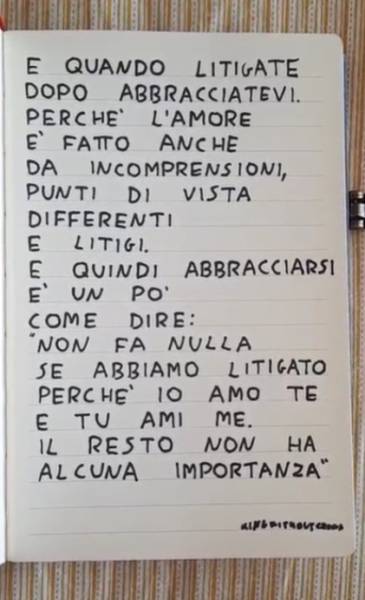 E QUANDO LITIGATE
DOPO ABBRACCIATEVI.
PERCHE' L'AMORE
E' FATTO ANCHE
DA INCOMPRENSIONI,
PUNTI DI VISTA
DIFFERENTI
E LITIGI.
E QUINDI ABBRACCIARSI
E' UN PO'
COME DIRE:
"NON FA NULLA
SE ABBIAMO LITIGATO
PERCHE' IO AMO TE
E TU AMI ME.
IL RESTO NON HA
ALCUNA IMPORTANZA"